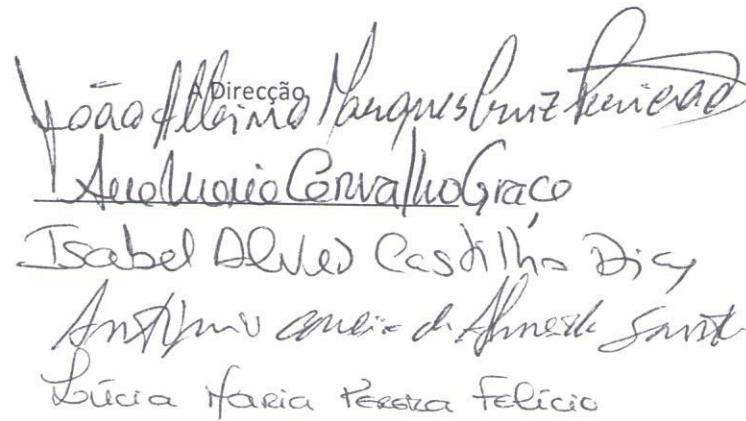 A Direcção
João Albino Marques Cruz
Ana Maria Carvalho Graça
Isabel Alves Castilho Dias
António de Almeida Santos
Lúcia Maria Pereira Felício